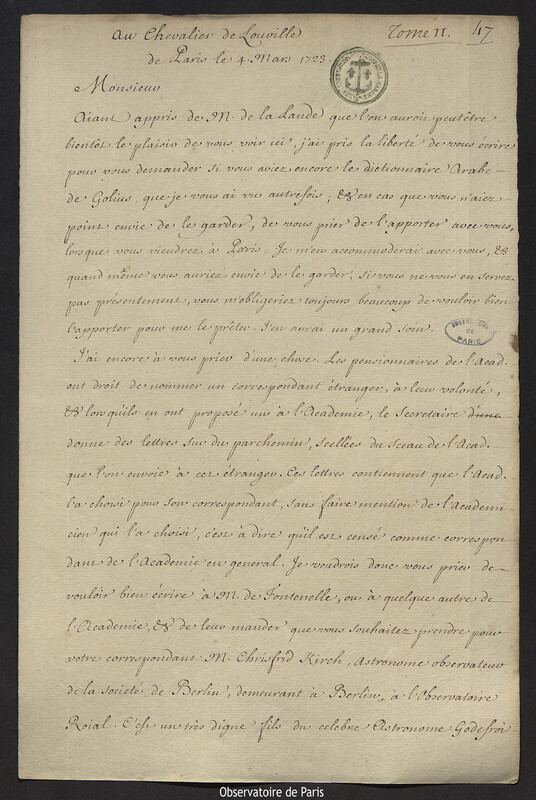 Au Chevalier de Louville
Tome II. 47
de Paris le 4. Mars 1723.
Monsieur
Aiant appris de M. de la Lande que l'on auroit peutêtre
bientôt le plaisir de vous voir ici, j'ai pris la liberté de vous écrire
pour vous demander si vous aviez encore le dictionnaire Arabe
de Golius, que je vous ai vu autrefois; & en cas que vous n'aiez
point envie de le garder, de vous prier de l'apporter avec vous,
lorsque vous viendrez à Paris. Je m'en accommoderai avec vous, &
quand même vous auriez envie de le garder, si vous ne vous en servez
pas présentement, vous m'obligeriez toujours beaucoup de vouloir bien
l'apporter pour me le prêter. J'en aurai un grand soin.
OBSERVATOIRE
DE
PARIS
J'ai encore à vous prier d'une chose. Les pensionnaires de l'Acad.
ont droit de nommer un correspondant étranger, à leur volonté,
& lorsqu'ils en ont proposé un à l'Academie, le Secretaire d'une
donne des lettres sur du parchemin, scellées du Sceau de l'Acad.
que l'on envoie à cet étranger. Ces lettres contiennent que l'Acad.
l'a choisi pour son correspondant, sans faire mention de l'Academi-
cien qui l'a choisi, c'est à dire qu'il est censé comme correspon-
dant de l'Academie en general. Je voudrois donc vous prier de
vouloir bien écrire à M. de Fontenelle, ou à quelque autre de
l'Academie, & de leur mander que vous souhaitez prendre pour
votre correspondant M. Chrisfrid Kirch, Astronome observateur
de la société de Berlin, demeurant à Berlin, à l'Observatoire
Roial. C'est un très digne fils du celebre Astronome Godefroi
Observatoire de Paris